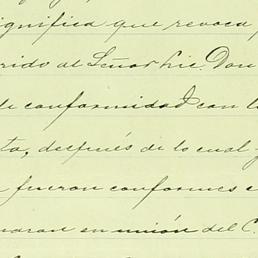 ignifica que revoca
rido al Señor Lic. Don
de conformidad con l
ta, después de lo cual
fueron conformes e
maron en unión del C.